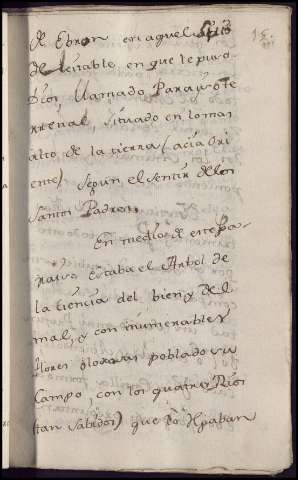 de Ebron en aquel Sitio
deleitable, en que le puso
Dios, llamado Parayso te
rrenal, situado en lo mas
alto de la tierra (acia Ori
ente) segun el sentir de los
Santos Padres.
En medio de este Pa-
rayso estaba el Arbol de
la ciencia del bien y del
mal, y con inumerables
flores olorosas poblado su
Campo, con los quatro Rios
(tan sabidos) que